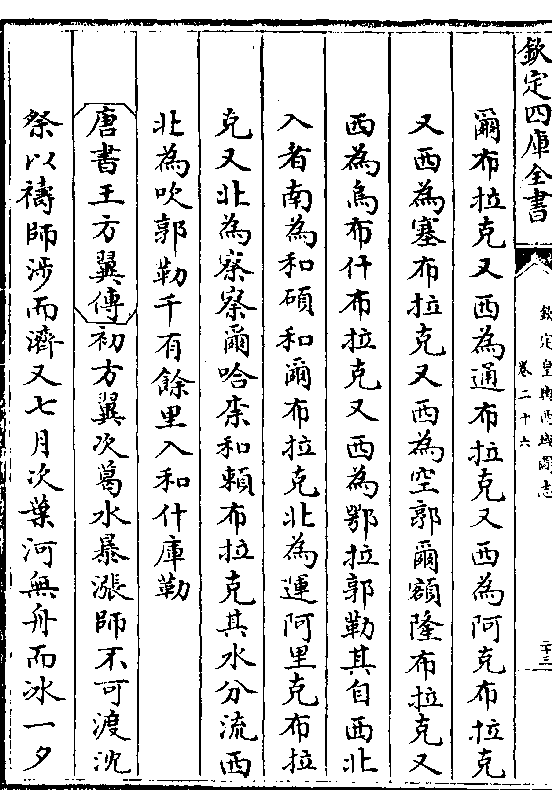 欽定四庫全書
欽定皇輿西域圖志
卷二十六
二十三
爾布拉克又西為通布拉克又西為阿克布拉克
又西為塞布拉克又西為空郭爾額隆布拉克又
西為烏布什布拉克又西為鄂拉郭勒其自西北
入者南為和碩和爾布拉克北為蓮阿里克布拉
克又北為察察爾哈庫和賴布拉克其水分流西
北為吹郭勒千有餘里入和什庫勒
唐書王方翼傳初方翼次葛水暴漲師不可渡沈
祭以禱師涉而濟又七月次葉河無舟而冰一夕